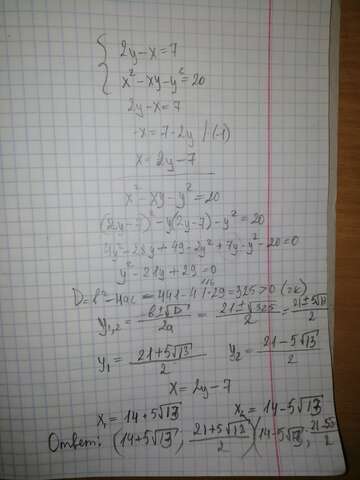 { 2y-x=7
x²-xy-y²=20
2y-x=7
-x=7-2y /·(-1)
x=2y-7
x²-xy-y²=20
(2y-7)²-y(2y-7)-y²=20
4y²-28y+49-2y²+7y-y²-20=0
y²-21y+29=0
D=b²-4ac=441-4·1·29=325>0 (2к)
y₁,₂=(-b±√D)/2a=(21±√325)/2=(21±5√13)/2
y₁=(21+5√13)/2 y₂=(21-5√13)/2
x=2y-7
x₁=14+5√13 x₂=14-5√13
Ответ: (14+5√13; (21+5√13)/2)(14-5√13; (21-5√13)/2